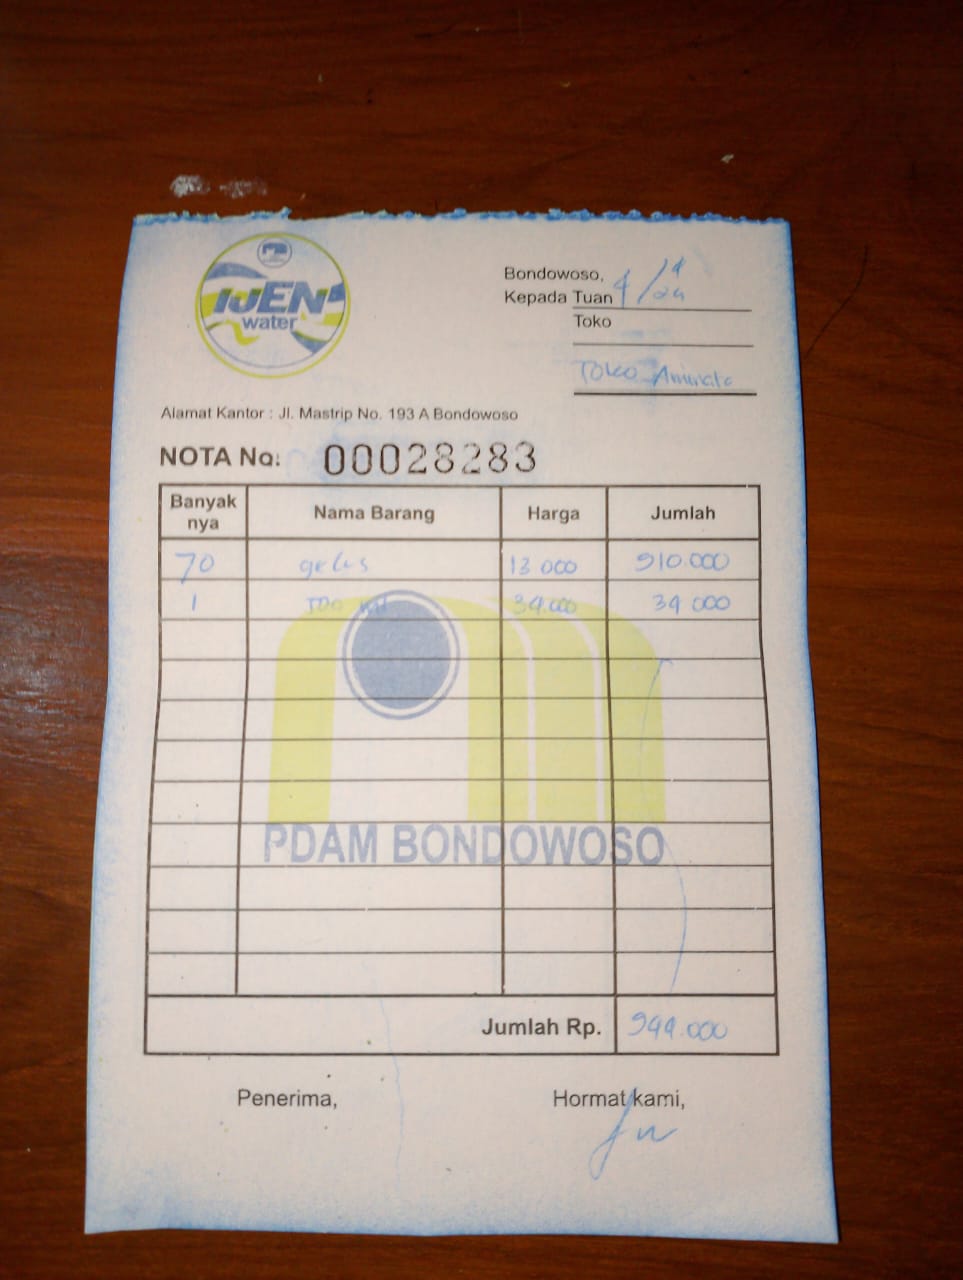 IJEN
water
Bondowoso,
Kepada Tuan
Toko
Toko Aminata
Alamat Kantor : Jl. Mastrip No. 193 A Bondowoso
NOTA No: 00028283
Banyak nya Nama Barang Harga Jumlah
70 gelas 13 000 910.000
1 34.000 34 000
PDAM BONDOWOSO
Jumlah Rp. 944.000
Penerima, Hormat kami,